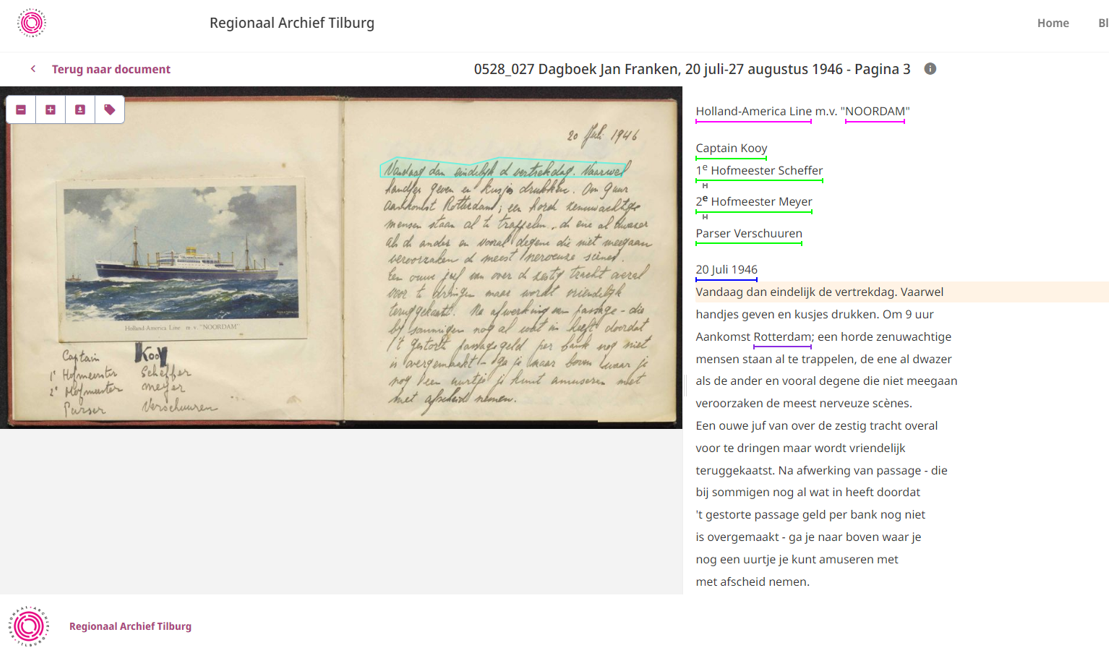 Regionaal Archief Tilburg
Home
Bl
Terug naar document
0528_027 Dagboek Jan Franken, 20 juli-27 augustus 1946 - Pagina 3
Holland-America Line m.v. "NOORDAM"
Captain Kooy
1e Hofmeester Scheffer
H
2e Hofmeester Meyer
H
Parser Verschuuren
20 Juli 1946
Vandaag dan eindelijk de vertrekdag. Vaarwel
handjes geven en kusjes drukken. Om 9 uur
Aankomst Rotterdam; een horde zenuwachtige
mensen staan al te trappelen, de ene al dwazer
als de ander en vooral degene die niet meegaan
veroorzaken de meest nerveuze scènes.
Een ouwe juf van over de zestig tracht overal
voor te dringen maar wordt vriendelijk
teruggekaatst. Na afwerking van passage - die
bij sommigen nog al wat in heeft doordat
't gestorte passage geld per bank nog niet
is overgemaakt - ga je naar boven waar je
nog een uurtje je kunt amuseren met
met afscheid nemen.
Holland-America Line m.v. "NOORDAM"
Captain Kooy
1e Hofmeester Scheffer
2e Hofmeester Meyer
Purser Verschuuren
20 Juli 1946
Vandaag dan eindelijk d vertrekdag. Vaarwel
handjes geven en kusjes drukken. Om 9 uur
Aankomst Rotterdam; een horde zenuwachtige
mensen staan al te trappelen, de ene al dwazer
als de ander en vooral degene die niet meegaan
veroorzaken d meest nerveuze scènes.
Een ouwe juf van over d zestig tracht overal
voor te dringen maar wordt vriendelijk
teruggekaatst. Na afwerking van passage - die
bij sommigen nog al wat in heeft doordat
't gestorte passagegeld per bank nog niet
is overgemaakt - ga je naar boven waar je
nog een uurtje je kunt amuseren met
met afscheid nemen.
Regionaal Archief Tilburg